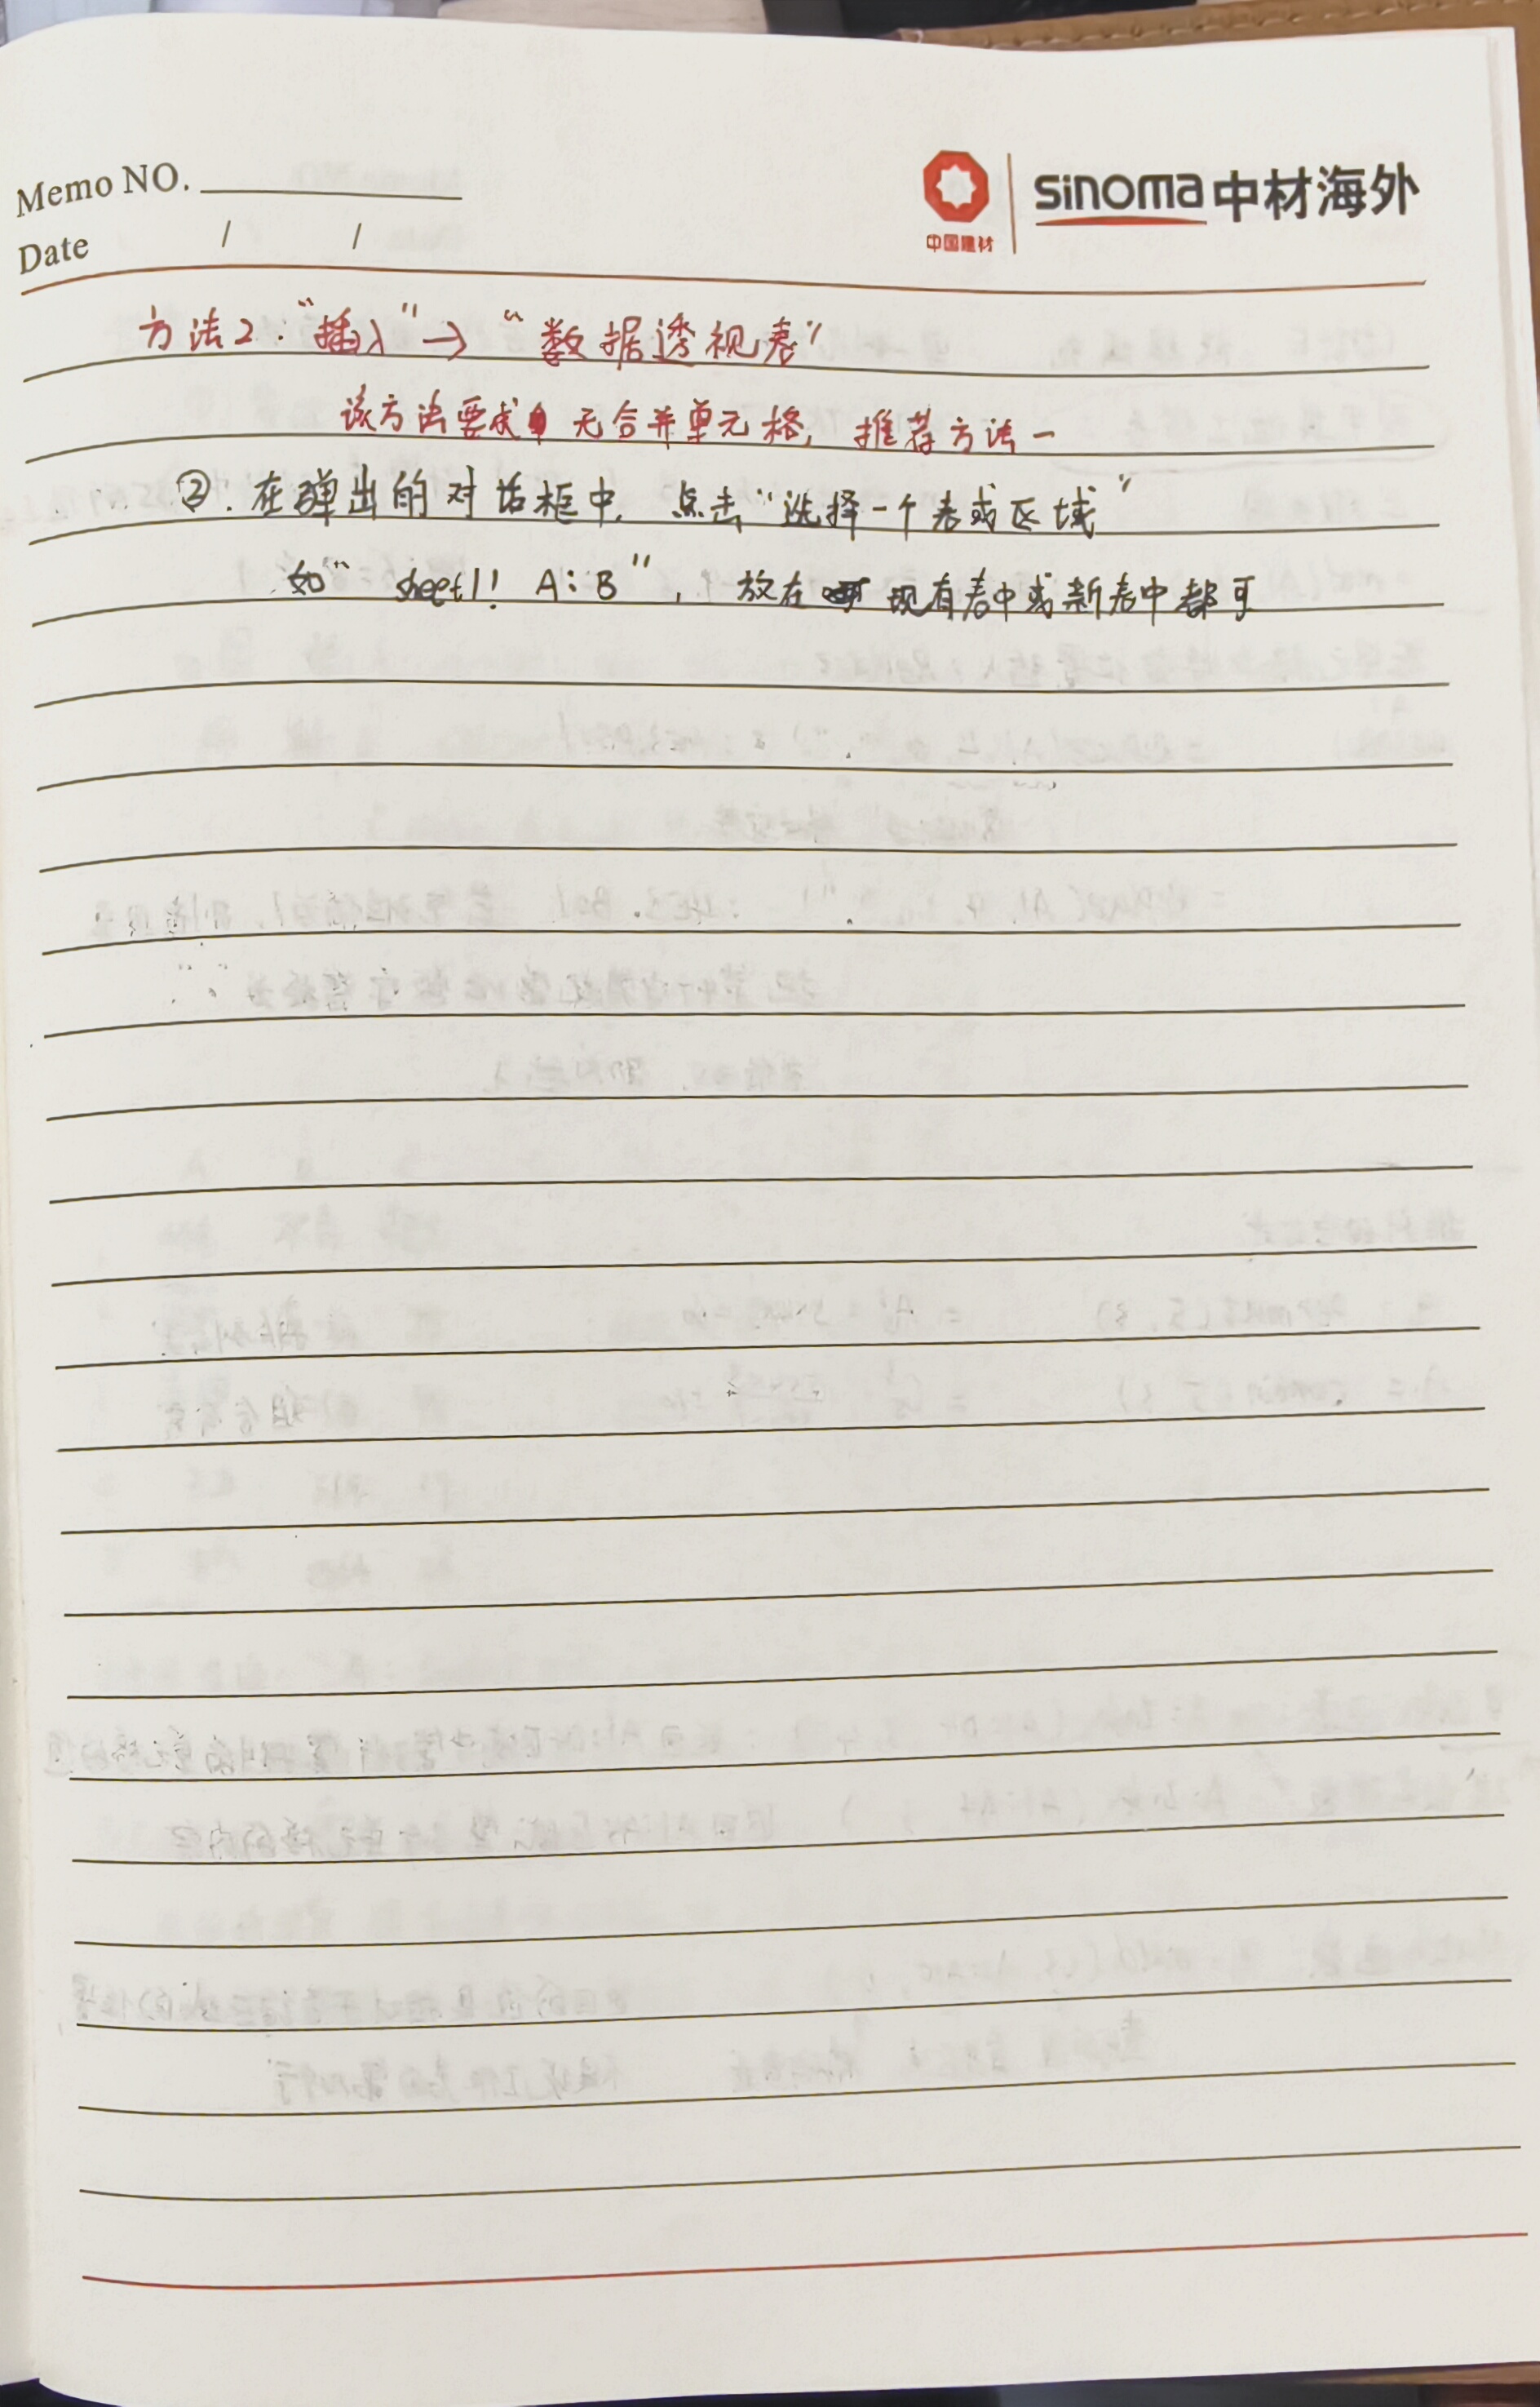 Memo NO.
Date / /
中国建材
sinoma 中材海外
方法2:“插入”→“数据透视表”
该方法要求 无合并单元格, 推荐方法一
②. 在弹出的对话框中, 点击“选择一个表或区域”
如“ sheet1! A:B ”, 放在 现有表中或新表中都可